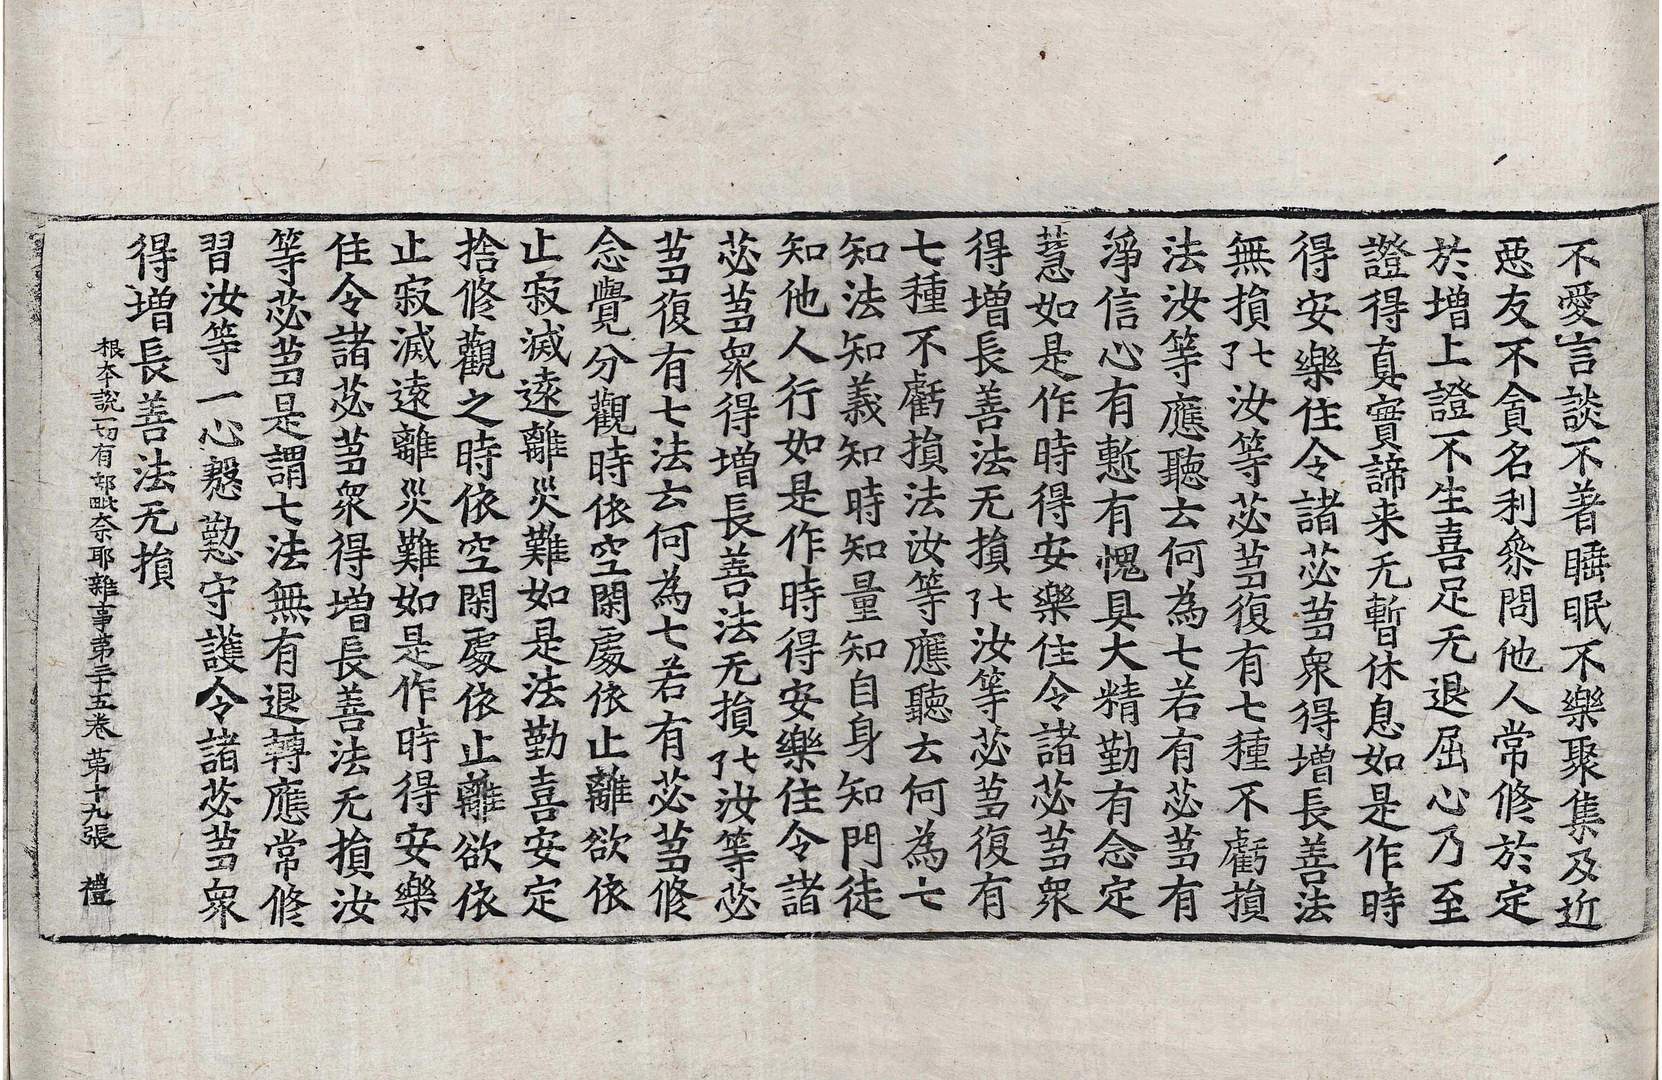 不愛言談不著睡眠不樂聚集及近
惡友不貪名利衆問他人常修於定
於增上證不生喜足无退屈心乃至
證得真實諦来无暫休息如是作時
得安樂住令諸苾芻衆得增長善法
無損了七汝等苾芻復有七種不虧損
法汝等應聽云何為七若有苾芻有
淨信心有慙有愧具大精勤有念定
慧如是作時得安樂住令諸苾芻衆
得增長善法无損了七汝等苾芻復有
七種不虧損法汝等應聽云何為七
知法知義知時知量知自身知門徒
知他人行如是作時得安樂住令諸
苾芻衆得增長善法无損了七汝等苾
芻復有七法云何為七若有苾芻修
念覺分觀時依空閑處依止離欲依
止寂滅遠離災難如是法勤喜安定
捨修觀之時依空閑處依止離欲依
止寂滅遠離災難如是作時得安樂
住令諸苾芻衆得增長善法无損汝
等苾芻是謂七法無有退轉應常修
習汝等一心慇懃守護令諸苾芻衆
得增長善法无損
根本說一切有部毗奈耶雜事第三十五卷 第十九張 禮